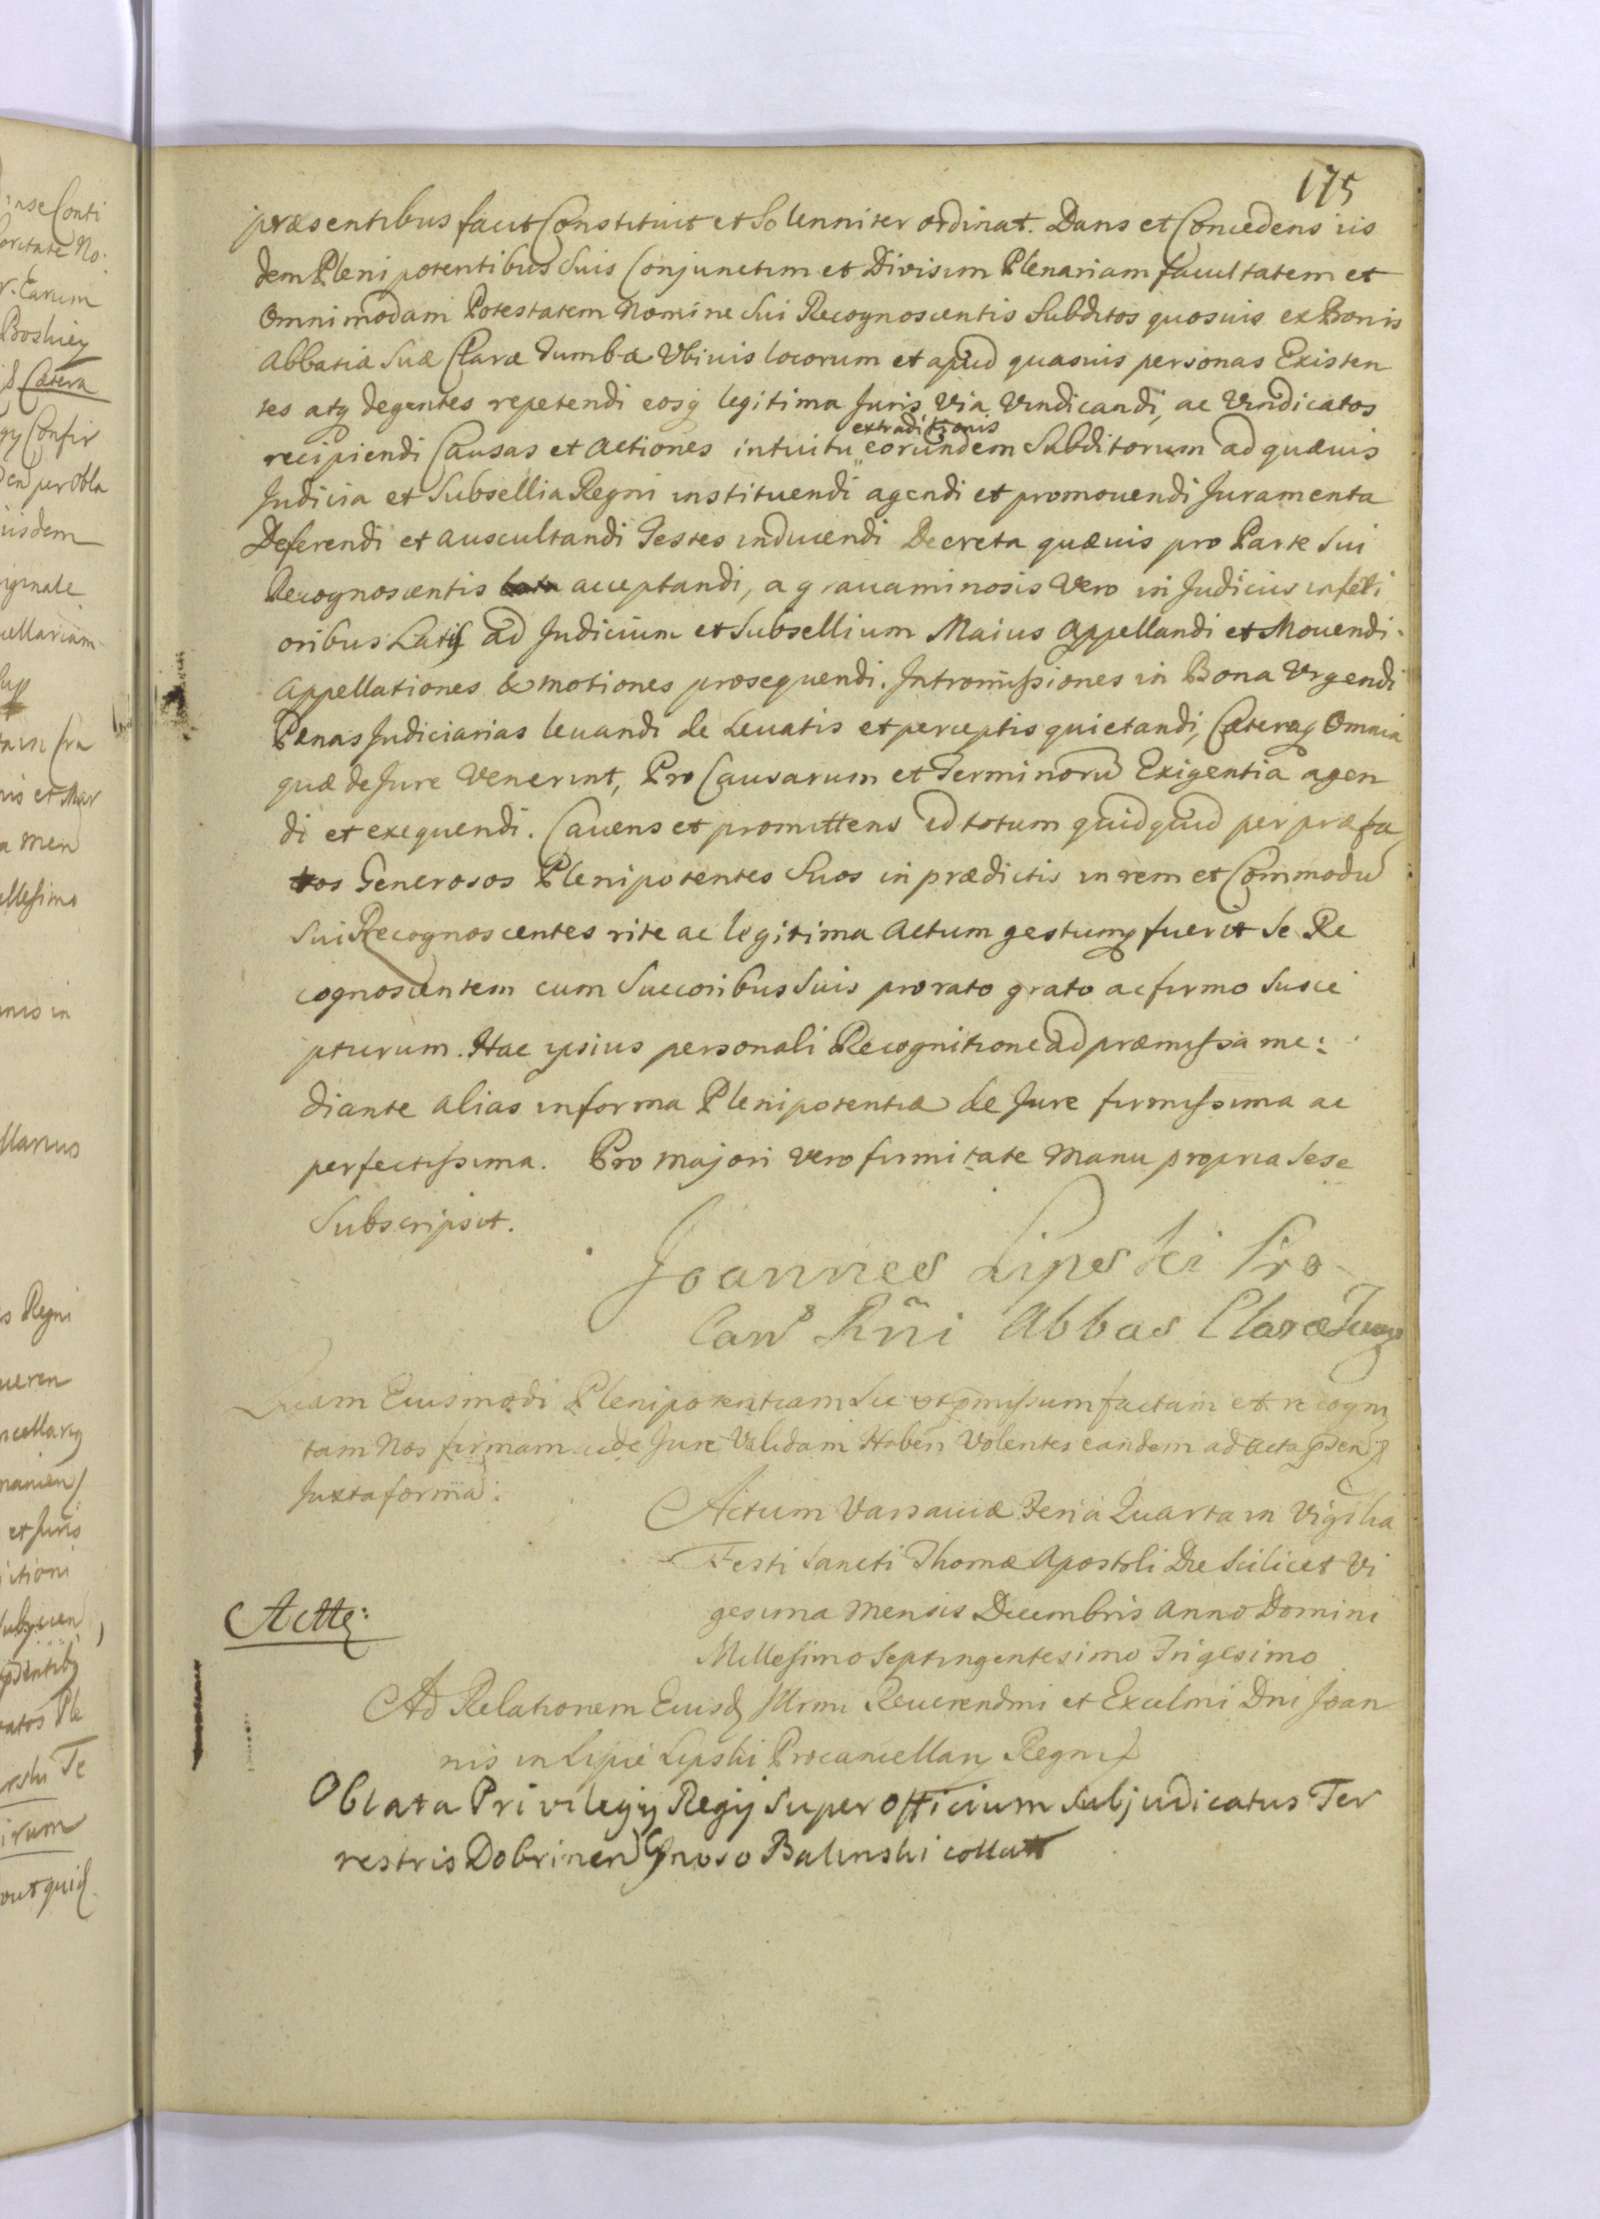 175
præsentibus facit Constituit et Solenniter ordinat. Dans et Concedens iis
dem Plenipotentibus Suis Conjunctim et Divisim Plenariam facultatem et
Omnimodam Potestatem Nomine Sui Recognoscentis Subditos quosuis ex Bonis
Abbatiæ Suæ Claræ Tumbæ Vbiuis locorum et apud quasuis personas Existen
tes atq degentes repetendi eosq legitima Juris Via Vindicandi, ac Vindicatos
extraditionis
recipiendi Causas et Actiones intuitu eorundem Subditorum ad quæuis
Judicia et Subsellia Regni instituendi agendi et promouendi Juramenta
Deferendi et auscultandi Testes inducendi Decreta quæuis pro Parte Sui
Recognoscentis acceptandi, a grauaminosis Vero in Judicijs inferi
oribus Latis ad Judicium et Subsellium Maius Appellandi et Mouendi.
Appellationes & motiones prosequendi. Intromissiones in Bona Vrgendi
Pænas Judiciarias leuandi de Leuatis et perceptis quietandi, Cæteraq Omnia
quæ de Jure Venerint, Pro Causarum et Terminorū Exigentia agen
di et exequendi. Cavens et promittens id totum quidquid per præfa
tos Generosos Plenipotentes Suos in prædictis in rem et Commodū
Sui Recognoscentes rite ac legitima Actum gestumq fuerit Se Re
cognoscentem cum Succoribus Suis pro rato grato ac firmo Susce
pturum. Hac ipsius personali Recognitione ad præmissa me:
diante alias in forma Plenipotentiæ de Jure firmissima ac
perfectissima. Pro Majori Vero firmitate Manu propria Sese
Subscripsit.
Joannes Lipski Pro
Canῦ Rñi Abbas Claræ Tumbæ
Quam Eiusmodi Plenipotentiam Sic ut pmissum factam et recogni
tam Nos firmam de Jure Validam Haberi Volentes eandem ad Acta psen
Juxta formā:
Actum Varsauiæ Feria Quarta in Vigilia
Festi Sancti Thomæ Apostoli Die Scilicet Vi
gesima Mensis Decembris Anno Domini
Millesimo Septingentesimo Trigesimo
Ad Relationem Eiusd Illrmi Reuerendmi et Excelmi Dni Joan
nis in Lipie Lipski Procancellarij Regni
Oblata Privilegij Regij Super Officium Subjudicatus Ter
restris Dobrinen Gnoso Balinski collati